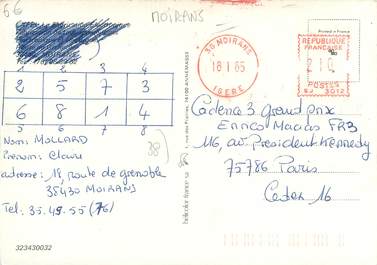 66
MOIRANS
Printed in France
38 MOIRANS
18 1 85
ISERE
REPUBLIQUE
FRANCAISE
2,10
POSTES
SJ 3012
1 2 3 4
2 5 7 3
6 8 1 4
5 6 7 8
Nom: MOLLARD
Prenom:
adresse: 18, route de grenoble
38430 MOIRANS
Tel: 35.49.55 (76)
38
74100 ANNEMASSE
helicolor france sa
Cadence 3 Grand prix
Enrico Macias FR3
116, av. President Kennedy
75786 Paris
Cedex 16
323430032